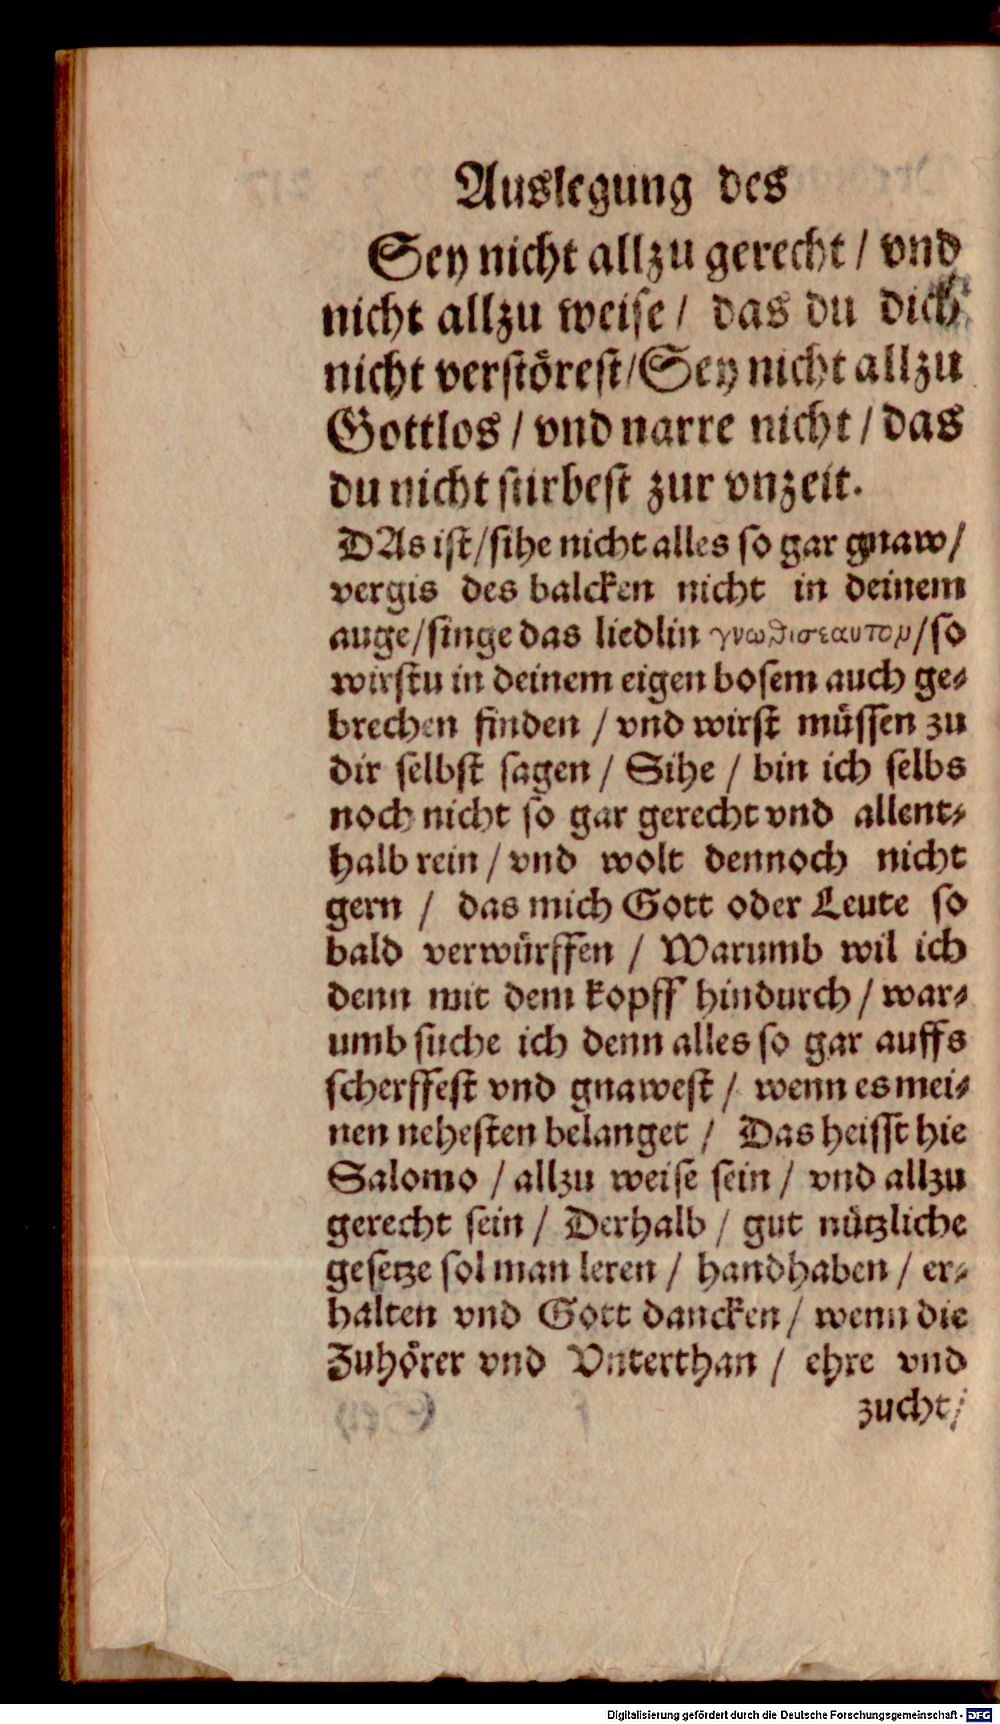 Auslegung des
Sey nicht allzu gerecht / vnd
nicht allzu weise / das du dich
nicht verstörest / Sey nicht allzu
Gottlos / vnd narre nicht / das
du nicht stirbest zur vnzeit.
DAs ist / sihe nicht alles so gar gnaw /
vergis des balcken nicht in deinem
auge / singe das liedlin γνωθισεαυτον / so
wirstu in deinem eigen bosem auch ge-
brechen finden / vnd wirst müssen zu
dir selbst sagen / Sihe / bin ich selbs
noch nicht so gar gerecht vnd allent-
halb rein / vnd wolt dennoch nicht
gern / das mich Gott oder Leute so
bald verwürffen / Warumb wil ich
denn mit dem kopff hindurch / war-
umb suche ich denn alles so gar auffs
scherffest vnd gnawest / wenn es mei-
nen nehesten belanget / Das heisst hie
Salomo / allzu weise sein / vnd allzu
gerecht sein / Derhalb / gut nützliche
gesetze sol man leren / handhaben / er-
halten vnd Gott dancken / wenn die
Zuhörer vnd Vnterthan / ehre vnd
zucht /
Digitalisierung gefördert durch die Deutsche Forschungsgemeinschaft - DFG